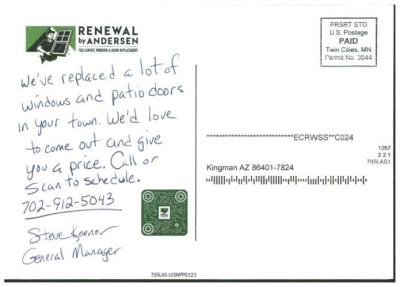 RENEWAL
by ANDERSEN
FULL-SERVICE WINDOW & DOOR REPLACEMENT
PRSRT STD
U.S. Postage
PAID
Twin Cities, MN
Permit No. 3044
We've replaced a lot of
windows and patio doors
in your town. We'd love
to come out and give
you a price. Call or
scan to schedule.
702-912-5043
Steve Keener
General Manager
ECRWSS**C024
1267
2 2 1
705LAS1
Kingman AZ 86401-7824
705LAS-LVSNPP0123